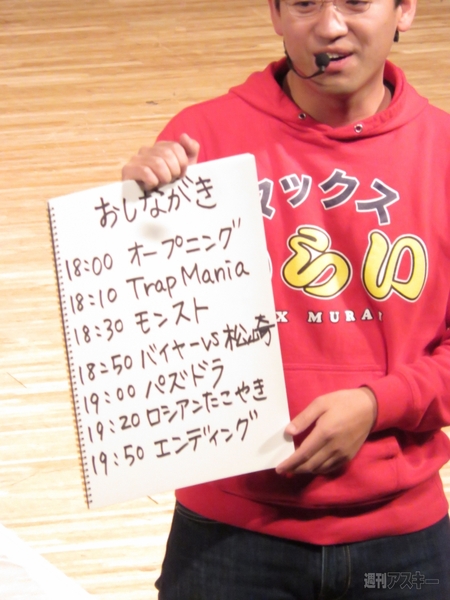 おしながき
18:00 オープニング
18:10 Trap Mania
18:30 モンスト
18:50 バイヤーvs松崎
19:00 パズドラ
19:20 ロシアンたこやき
19:50 エンディング
マックス
むらい
X MURA
週刊アスキー